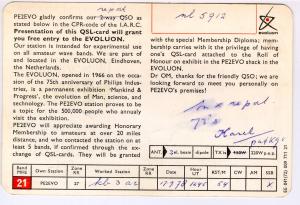 repal
PE2EVO gladly confirms our 2-way QSO as
stated below in the CPR-code of the I.A.R.C.
Presentation of this QSL-card will grant
you free entry to the EVOLUON.
Our station is intended for experimental use
on all amateur wave bands. We are part of
and located in the EVOLUON, Eindhoven,
the Netherlands.
The EVOLUON, opened in 1966 on the occasion
of the 75th anniversary of Philips Industries,
is a permanent exhibition 'Mankind &
Progress', the idea of Man, science, and technology.
The PE2EVO station proves
to be topic for the 500,000 people who annually
visit the exhibition.
PE2EVO will appreciate awarding Honorary
Membership to amateurs at over 20 miles
distance, and who contacted the station on at
least 5 bands, if confirmed through the exchange
of QSL-cards. They will be granted
nl 5912
evoluon
with the special Membership Diploma; membership
carries with it the privilege of having
one's QSL-card attached to the Roll of
Honour or exhibit in the PE2EVO shack in the
EVOLUON.
Dr OM, thank for QSO; we are
looking forward to meet you personally in
PE2EVO's premises!
73's
Karel
BAND MHz Own Station Zone RR Worked Station Zone RR
ANT.: 3 el. beam dipole
Date Hour UT RST/M CW AM SSB
21 PE2EVO 27 X